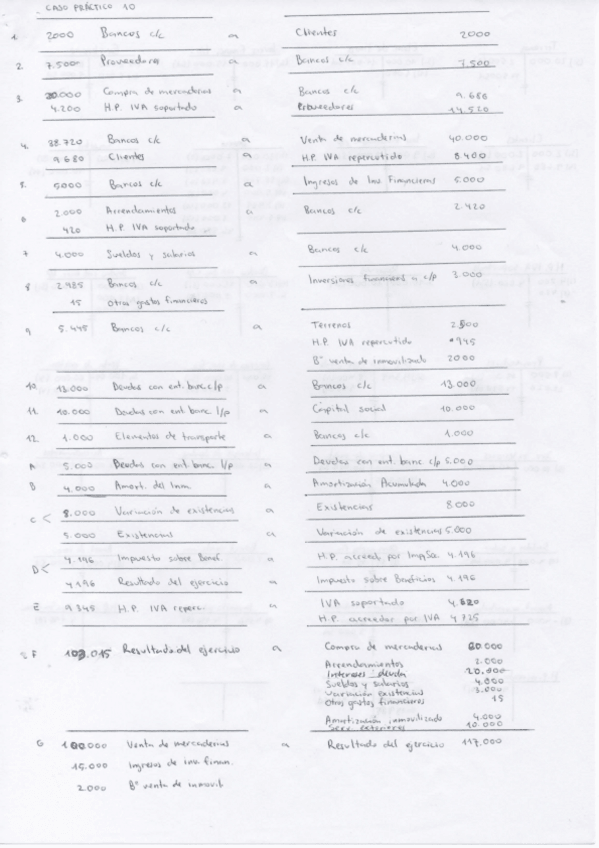 CASO PRÁCTICO 10
1. 2000 Bancos c/c a Clientes 2000
2. 7.500 Proveedores a Bancos c/c 7.500
3. 20.000 Compra de mercaderias a Bancos c/c 9.686
4.200 H.P. IVA soportado Proveedores 14.520
4. 38.720 Bancos c/c a Venta de mercaderias 40.000
9.680 Clientes H.P. IVA repercutido 8400
5. 5000 Bancos c/c a Ingresos de Inv Financieras 5.000
6 2.000 Arrendamientos a Bancos c/c 2.420
420 H.P. IVA soportado
7 4.000 Sueldos y salarios a Bancos c/c 4.000
8 2.985 Bancos c/c a Inversiones financieras c/p 3.000
15 Otros gastos financieros
9 5.445 Bancos c/c a Terrenos 2.500
H.P. IVA repercutido 945
Bº venta de inmovilizado 2000
10. 13.000 Deudas con ent. banc. c/p a Bancos c/c 13.000
11. 10.000 Deudas con ent. banc. l/p a Capital social 10.000
12. 1.000 Elementos de transporte a Bancos c/c 1.000
A 5.000 Deudas con ent. banc. l/p a Deudas con ent. banc c/p 5.000
B 4.000 Amort. del Inm. a Amortización Acumulada 4.000
C < 8.000 Variación de existencias a Existencias 8000
5.000 Existencias a Variación de existencias 5.000
D < 4.196 Impuesto sobre Benef. a H.P. acreed. por ImpSo. 4.196
4196 Resultado del ejercicio a Impuesto sobre Beneficios 4.196
E 9345 H.P. IVA reperc. a IVA soportado 4.620
H.P. acreedor por IVA 4725
F 103.015 Resultado del ejercicio a Compra de mercaderias 60.000
Arrendamientos 2.000
Intereses deuda 20.000
Sueldos y salarios 4.000
Variación existencias 3.000
Otros gastos financieros 15
Amortización inmovilizado 4.000
Serv. exteriores 10.000
G 100.000 Venta de mercaderias a Resultado del ejercicio 117.000
15.000 Ingresos de inv. finan.
2.000 Bº venta de inmovib